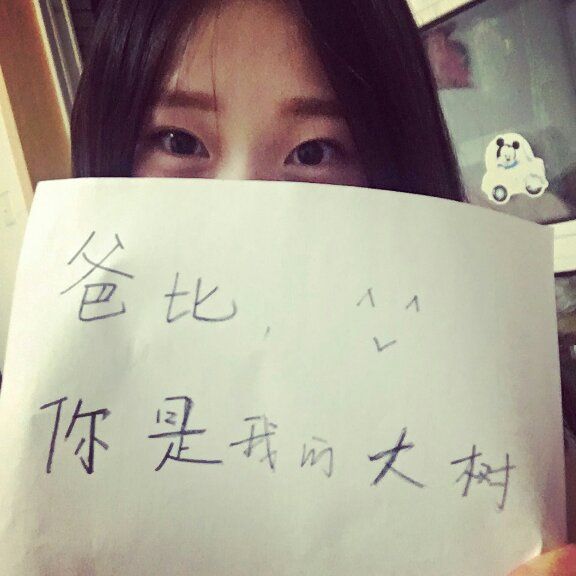 爸比, ^ ^
你是我的大树